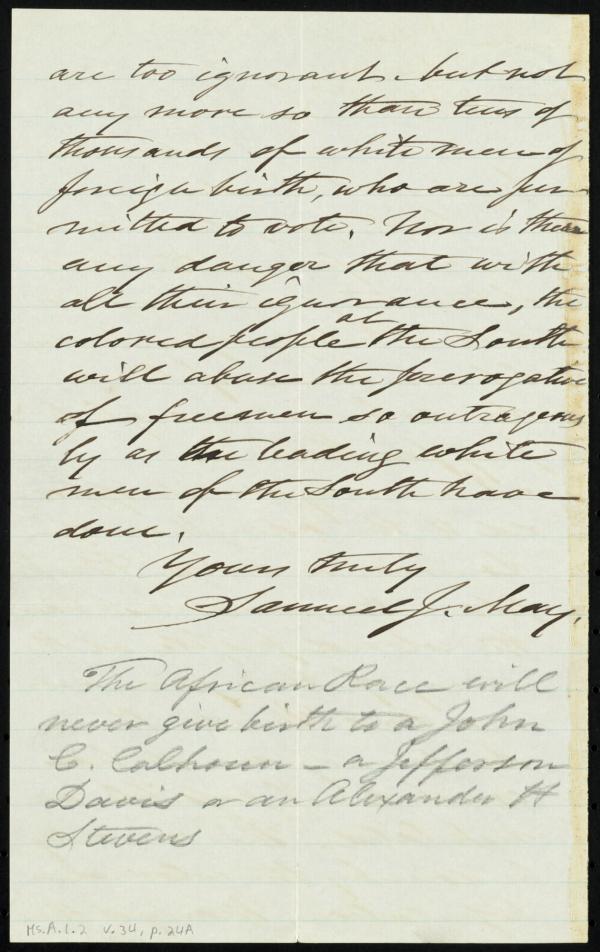 are too ignorant – but not
any more so than tens of
thousands of white men of
foreign birth, who are per-
mitted to vote. Nor is there
any danger that with
all their ignorance, the
colored people at the South
will abuse the prerogative
of freemen so outrageous
ly as the leading white
men of the South have
done.
Yours truly
Samuel J. May.
The African Race will
never give birth to a John
C. Calhoun – a Jefferson
Davis or an Alexander H
Stevens
Ms.A.1.2 v.34, p.24A